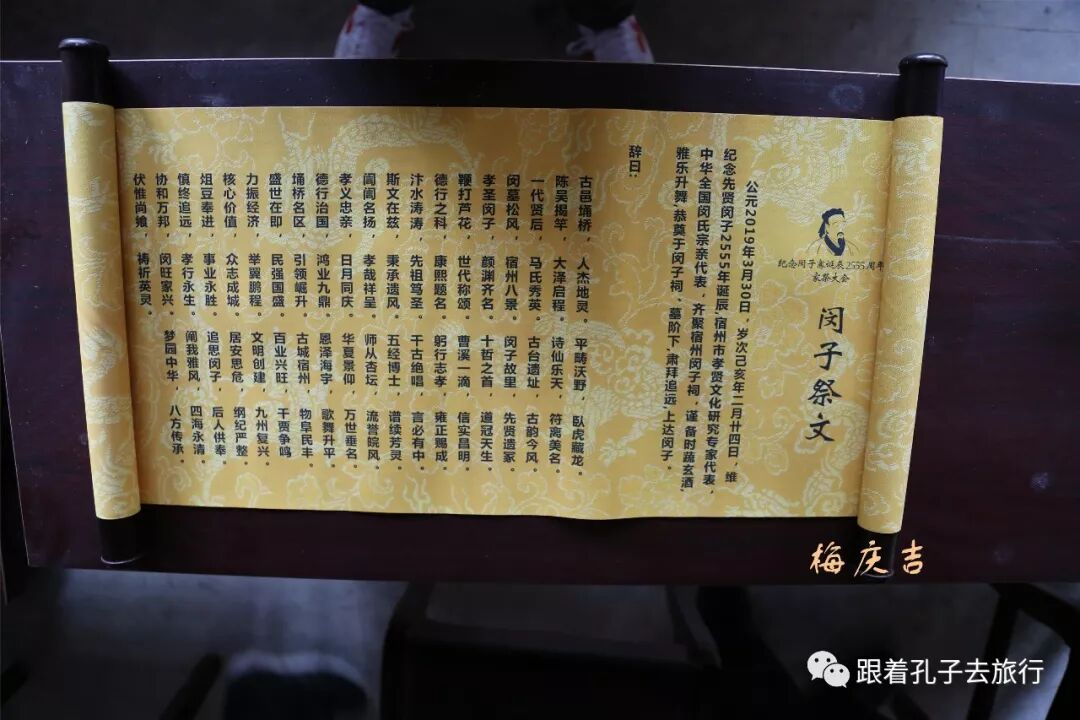 纪念闵子骞诞辰2555周年
家祭大会
闵子祭文
公元2019年3月30日，岁次己亥年二月廿四日，维
纪念先贤闵子2555年诞辰，宿州市孝贤文化研究专家代表，
中华全国闵氏宗亲代表，齐聚宿州闵子祠，谨备时蔬玄酒，
雅乐升舞，恭奠于闵子祠、墓阶下，肃拜追远，上达闵子。
辞曰：
古邑埇桥，人杰地灵。平畴沃野，臥虎藏龙。
陈吴揭竿，大泽启程。诗仙乐天，符离美名。
一代贤后，马氏秀英。古台遗址，古韵今风。
闵墓松风，宿州八景。闵子故里，先贤遗冢。
孝圣闵子，颜渊齐名。十哲之首，道冠天生。
鞭打芦花，世代称颂。曹溪一滴，信实昌明。
德行之科，康熙题名。躬行志孝，雍正赐成。
汴水涛涛，先祖笃圣。千古绝唱，言必有中。
斯文在兹，秉承遗风。五经博士，谱续芳灵。
闾阖名扬，孝哉祥呈。师从杏坛，流誉皖风。
孝义忠亲，日月同庆。华夏景仰，万世垂名。
德行治国，鸿业九鼎。恩泽海宇，歌舞升平。
埇桥名区，引领崛升。古城宿州，物阜民丰。
盛世在即，民强国盛。百业兴旺，千贾争鸣
力振经济，举翼鹏程。文明创建，九州复兴。
核心价值，众志成城。居安思危，纲纪严整。
俎豆奉进，事业永胜。追思闵子，后人供奉。
慎终追远，孝行永生。阐我雅风，四海永清。
协和万邦，闵旺家兴。梦园中华，八方传承。
伏惟尚飨，祷祈英灵。
梅庆吉
跟着孔子去旅行